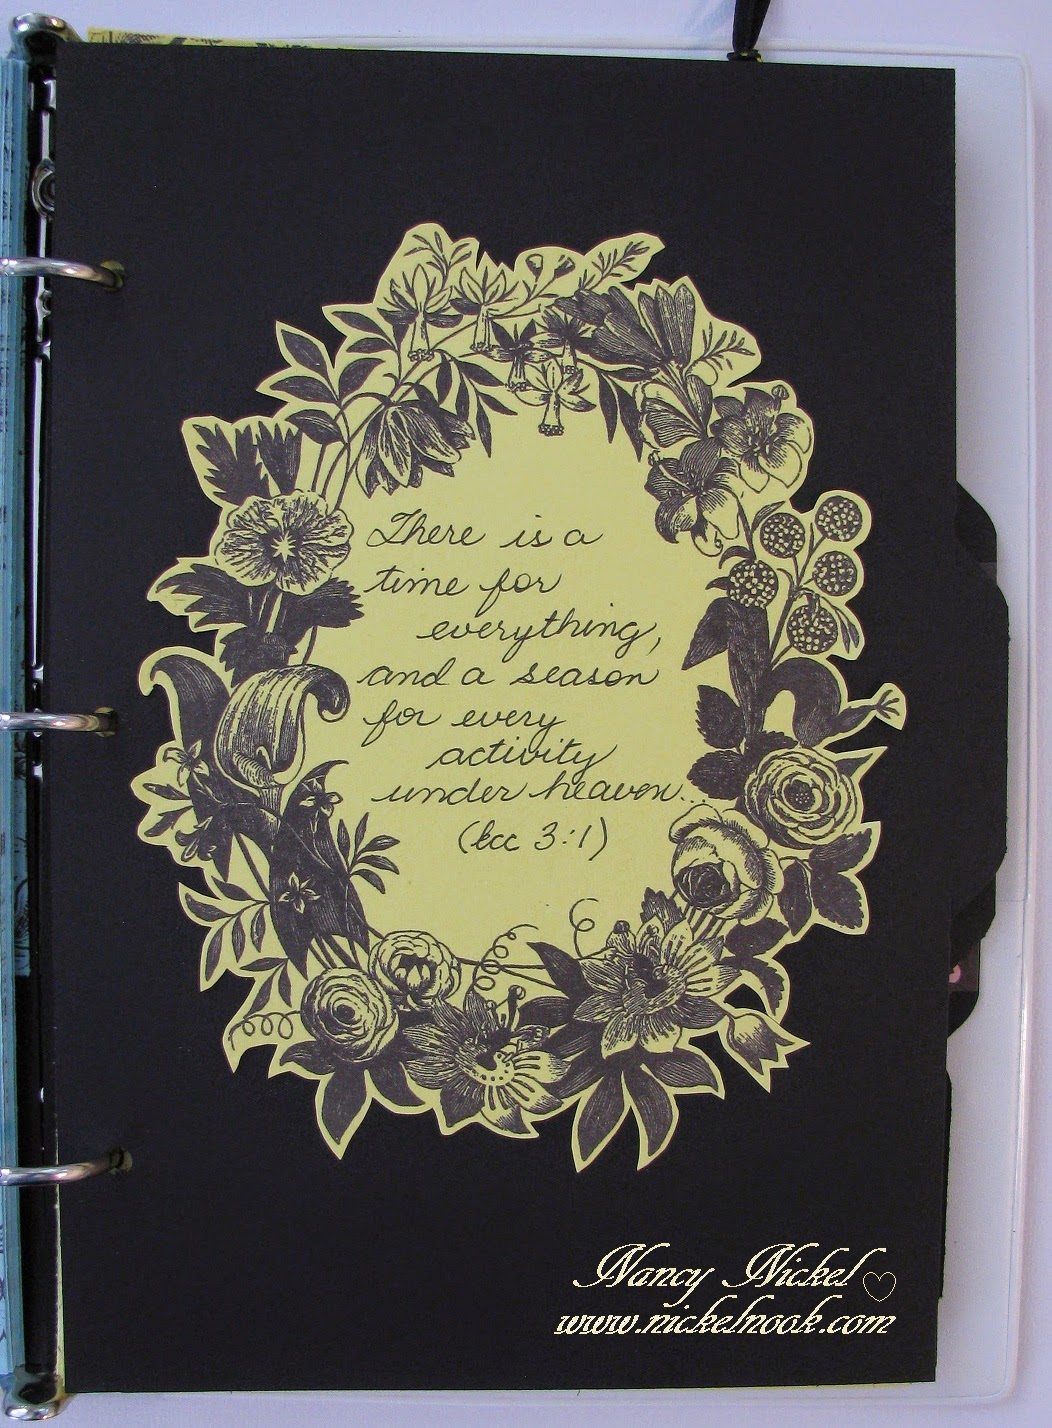 There is a
time for
everything,
and a season
for every
activity
under heaven...
(Ecc 3:1)
Nancy Nickel
www.nickelnook.com